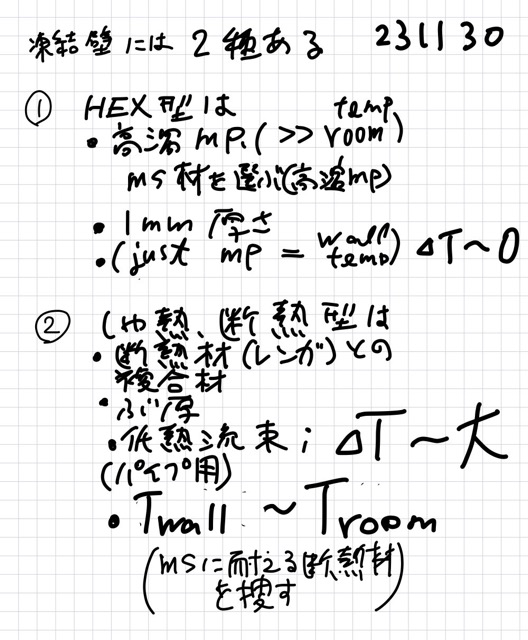 凍結壁には 2種ある 231130
① HEX型は
・高温 mp.(>> room temp)
ms材を選ぶ(高温mp)
・1mm 厚さ
・(just mp = wall temp) ΔT~0
② しゃ熱、断熱型は
・断熱材(レンガ)との
複合材
・ぶ厚
・低熱流束; ΔT~大
(パイプ用)
・Twall ~ Troom
(msに耐える断熱材
を捜す)